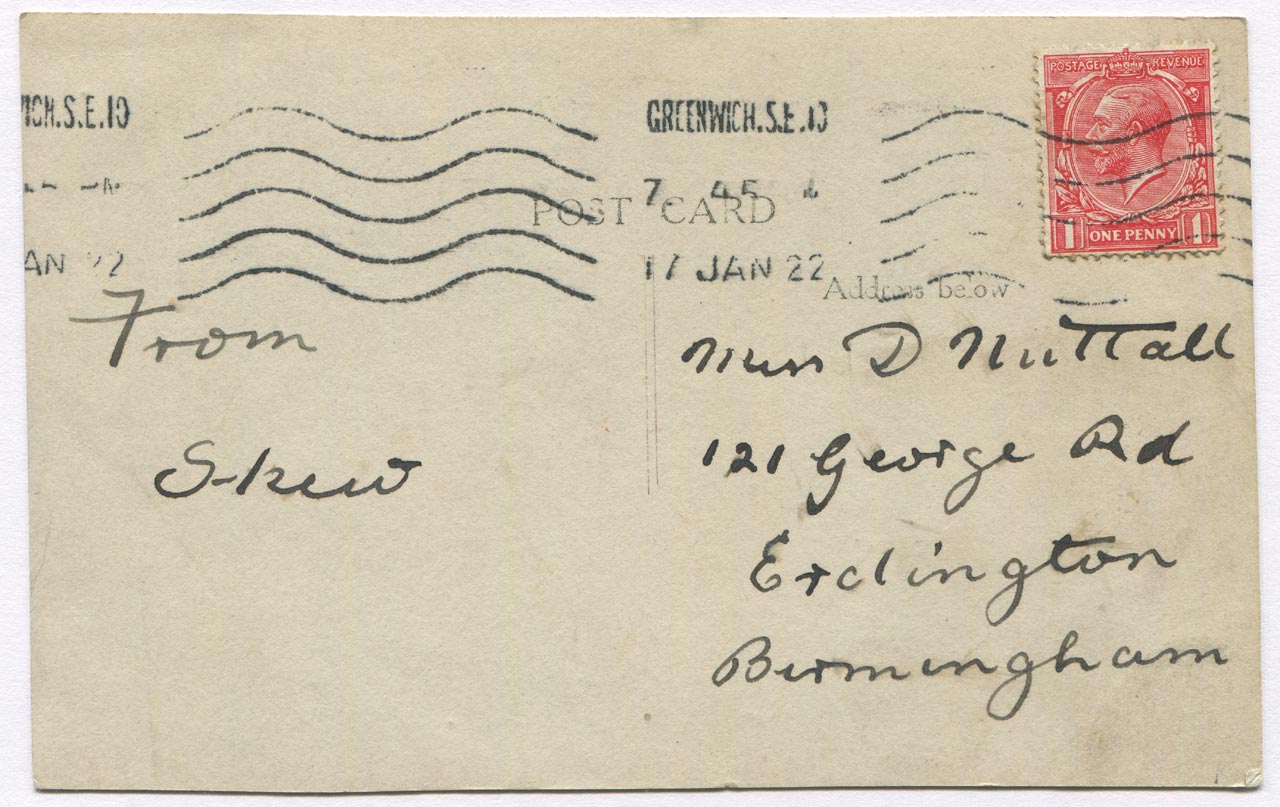 POSTAGE REVENUE
ICH.S.E.10
GREENWICH.S.E.10
7 45
POST CARD
1 ONE PENNY 1
AN 22
17 JAN 22
Address below
From
Miss D Nuttall
Skew
121 George Rd
Erdington
Birmingham